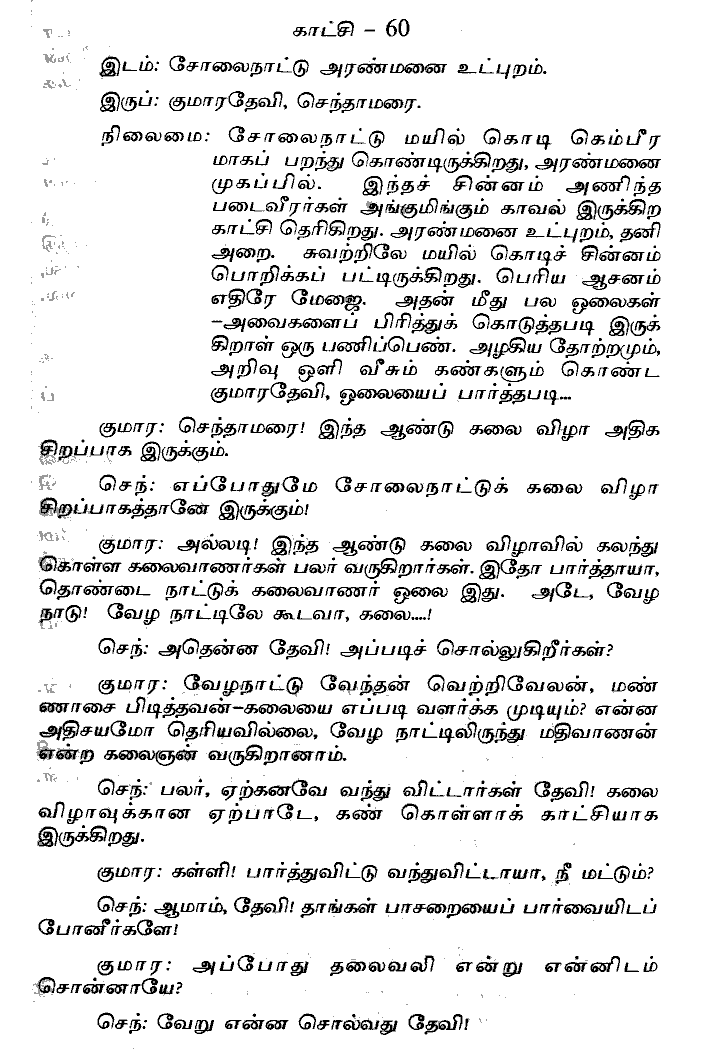 காட்சி – 60
இடம்: சோலைநாட்டு அரண்மனை உட்புறம்.
இருப்: குமாரதேவி, செந்தாமரை.
நிலைமை: சோலைநாட்டு மயில் கொடி கெம்பீர
மாகப் பறந்து கொண்டிருக்கிறது, அரண்மனை
முகப்பில். இந்தச் சின்னம் அணிந்த
படைவீரர்கள் அங்குமிங்கும் காவல் இருக்கிற
காட்சி தெரிகிறது. அரண்மனை உட்புறம், தனி
அறை. சுவற்றிலே மயில் கொடிச் சின்னம்
பொறிக்கப் பட்டிருக்கிறது. பெரிய ஆசனம்
எதிரே மேஜை. அதன் மீது பல ஓலைகள்
–அவைகளைப் பிரித்துக் கொடுத்தபடி இருக்
கிறாள் ஒரு பணிப்பெண். அழகிய தோற்றமும்,
அறிவு ஒளி வீசும் கண்களும் கொண்ட
குமாரதேவி, ஓலையைப் பார்த்தபடி...
குமார: செந்தாமரை! இந்த ஆண்டு கலை விழா அதிக
சிறப்பாக இருக்கும்.
செந்: எப்போதுமே சோலைநாட்டுக் கலை விழா
சிறப்பாகத்தானே இருக்கும்!
குமார: அல்லடி! இந்த ஆண்டு கலை விழாவில் கலந்து
கொள்ள கலைவாணர்கள் பலர் வருகிறார்கள். இதோ பார்த்தாயா,
தொண்டை நாட்டுக் கலைவாணர் ஓலை இது. அடே, வேழ
நாடு! வேழ நாட்டிலே கூடவா, கலை....!
செந்: அதென்ன தேவி! அப்படிச் சொல்லுகிறீர்கள்?
குமார: வேழநாட்டு வேந்தன் வெற்றிவேலன், மண்
ணாசை பிடித்தவன்–கலையை எப்படி வளர்க்க முடியும்? என்ன
அதிசயமோ தெரியவில்லை, வேழ நாட்டிலிருந்து மதிவாணன்
என்ற கலைஞன் வருகிறானாம்.
செந்: பலர், ஏற்கனவே வந்து விட்டார்கள் தேவி! கலை
விழாவுக்கான ஏற்பாடே, கண் கொள்ளாக் காட்சியாக
இருக்கிறது.
குமார: கள்ளி! பார்த்துவிட்டு வந்துவிட்டாயா, நீ மட்டும்?
செந்: ஆமாம், தேவி! தாங்கள் பாசறையைப் பார்வையிடப்
போனீர்களே!
குமார: அப்போது தலைவலி என்று என்னிடம்
சொன்னாயே?
செந்: வேறு என்ன சொல்வது தேவி!